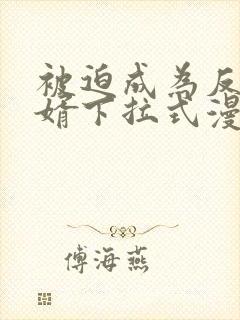 被迫成为反
婿下拉式漫
傅海燕